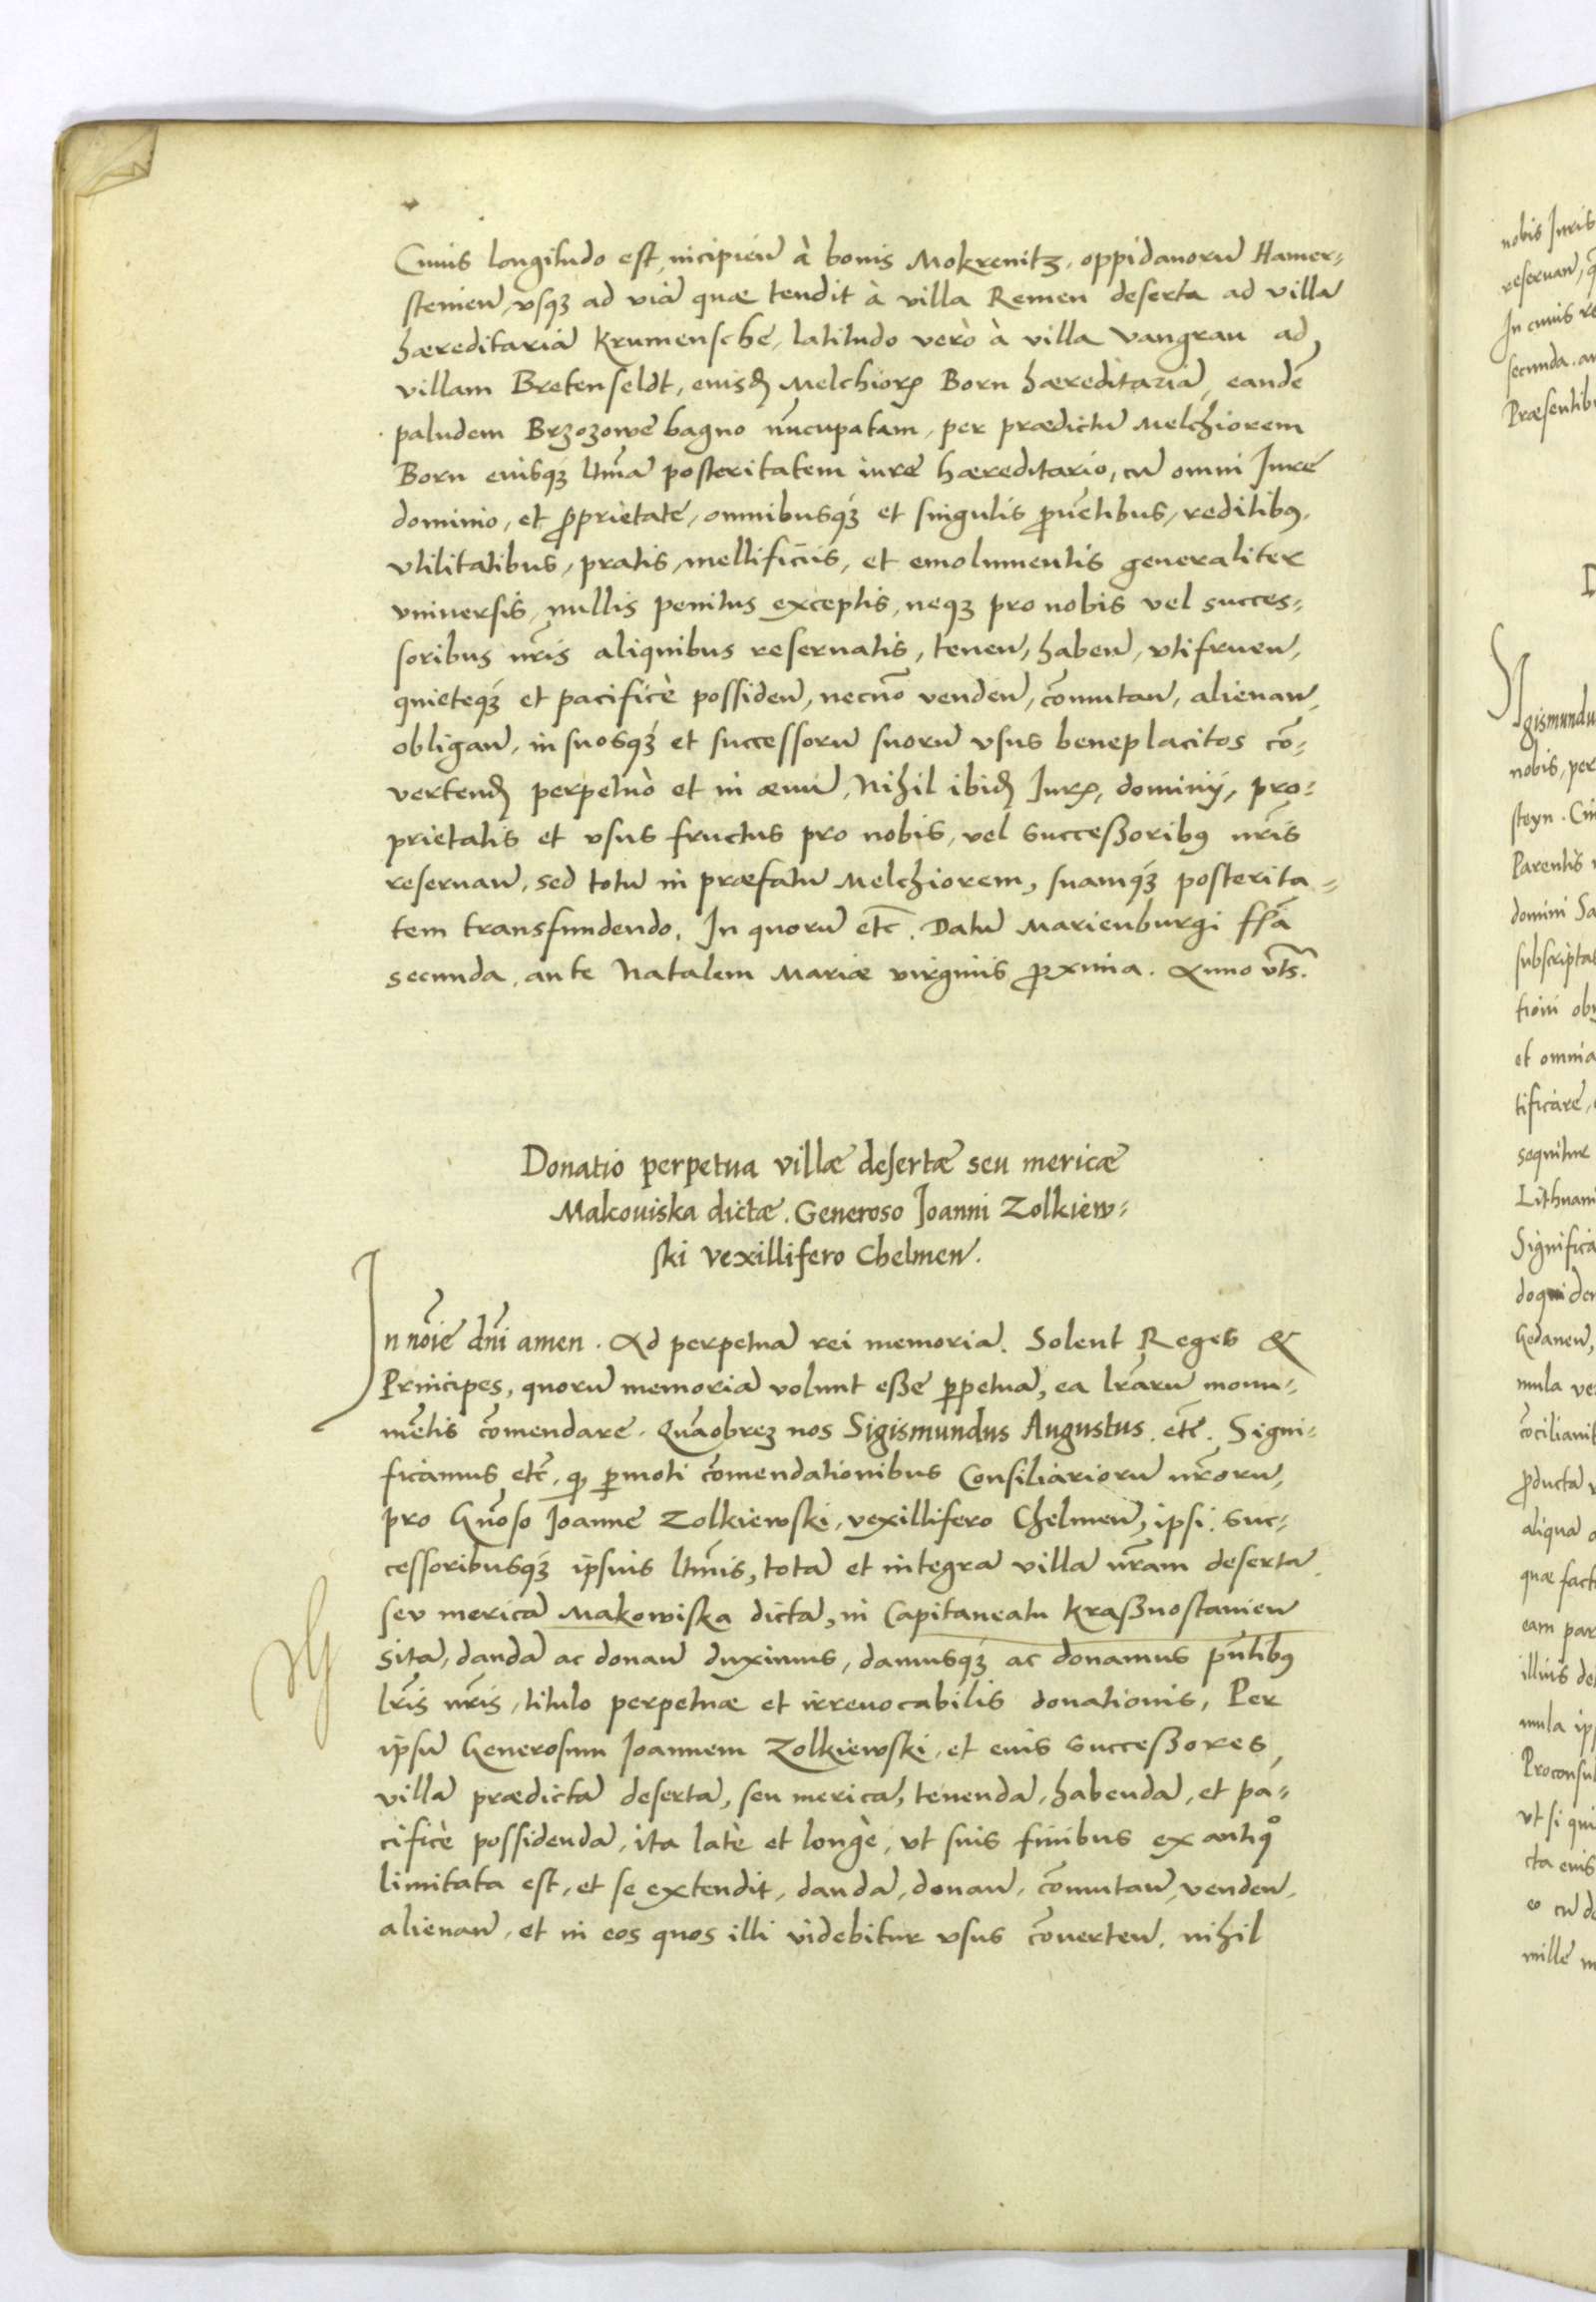 Cuius longitudo est, incipień à bonis Mokrenitz, oppidanorũ Hamer=
stenień, usq́ʒ ad viã quæ tendit à villa Remen deserta ad villã
hæreditariã Krumensche, latitudo verò à villa Vangrau ad
villam Bretenfeldt, eiusđ Melchioꝝ Born hæreditariã, eandẽ
paludem Brzozowe bagno nũcupatam, per prædictũ Melchiorem
Born eiusq́ʒ ltimã posteritatem iure hæreditario, cũ omni Jure
dominio, et ꝓprietate, omnibusq́ʒ et singulis ꝓuẽtibus, reditibꝰ,
vtilitatibus, pratis, mellificiis, et emolumentis generaliter
vniuersis, nullis penitus exceptis, neqʒ pro nobis vel succes=
soribus nr̃is aliquibus reseruatis, teneñ, habeñ, vtifrueñ,
quieteq́ʒ et pacificè possideñ, necnõ vendeñ, cõmutañ, alienañ,
obligañ, in suosq́ʒ et successorũ suorũ vsus beneplacitos cõ=
vertenđ perpetuò et in æuũ, Nihil ibiđ Juꝝ, dominij, pro=
prietatis et vsus fructus pro nobis, vel successoribꝰ nr̃is
reseruañ, sed totũ in præfatũ Melchiorem, suamq́ʒ posterita=
tem transfundendo. In quorũ etc̃. Datũ Marienburgi fr̃ia
secunda, ante Natalem Mariæ virginis ꝓxima. Anno vts̃.
Donatio perpetua villæ desertæ seu mericæ
Makouiska dictæ. Generoso Joanni Zolkiew=
ski vexillifero Chelmeñ.
In nõie dñi amen. Ad perpetuã rei memoriã. Solent Reges &
Principes, quorũ memoriã volunt esse ꝑpetuã, ea lr̃arũ monu=
mẽtis cõmendare. Quãobreʒ nos Sigismundus Augustus. etc̃. Signi=
ficamus etc̃, qꝫ ꝑmoti cõmendationibus Consiliariorũ nr̃orũ,
pro Gñoso Joanne Zolkiewski, vexillifero Chelmeñ, ipsi, suc=
cessoribusq́ʒ ipsius ltimis, totã et integrã villã nr̃am desertã
seu mericã Makowiska dictã, in Capitaneatu Krassnostanień
sitã, dandã ac donañ duximus, damusq́ʒ ac donamus pñtibꝰ
lr̃is nr̃is, titulo perpetuæ et irreuocabilis donationis, Per
ipsũ Generosum Joannem Zolkiewski, et eius successores,
villã prædictã desertã, seu mericã, tenendã, habendã, et pa=
cificè possidendã, ita latè et longè, vt suis finibus ex antiqº
limitata est, et se extendit, dandã, donañ, cõmutañ, vendeñ,
alienañ, et in eos quos illi videbitur vsus cõuerteñ, nihil
nobis Juris
reseruañ,
In cuius
secunda.
Præsentib
gismundu
nobis, per
steyn.
Parentis
domini
subscripta
tioni
et omnia
tificare,
sequitur
Lithuani
Significa
Gedaneñ,
ꝓducta
aliquã
quæ fact
eam par
illius de
mula ip
Proconsul
vt si qui
cta eius
eo cũ
mille